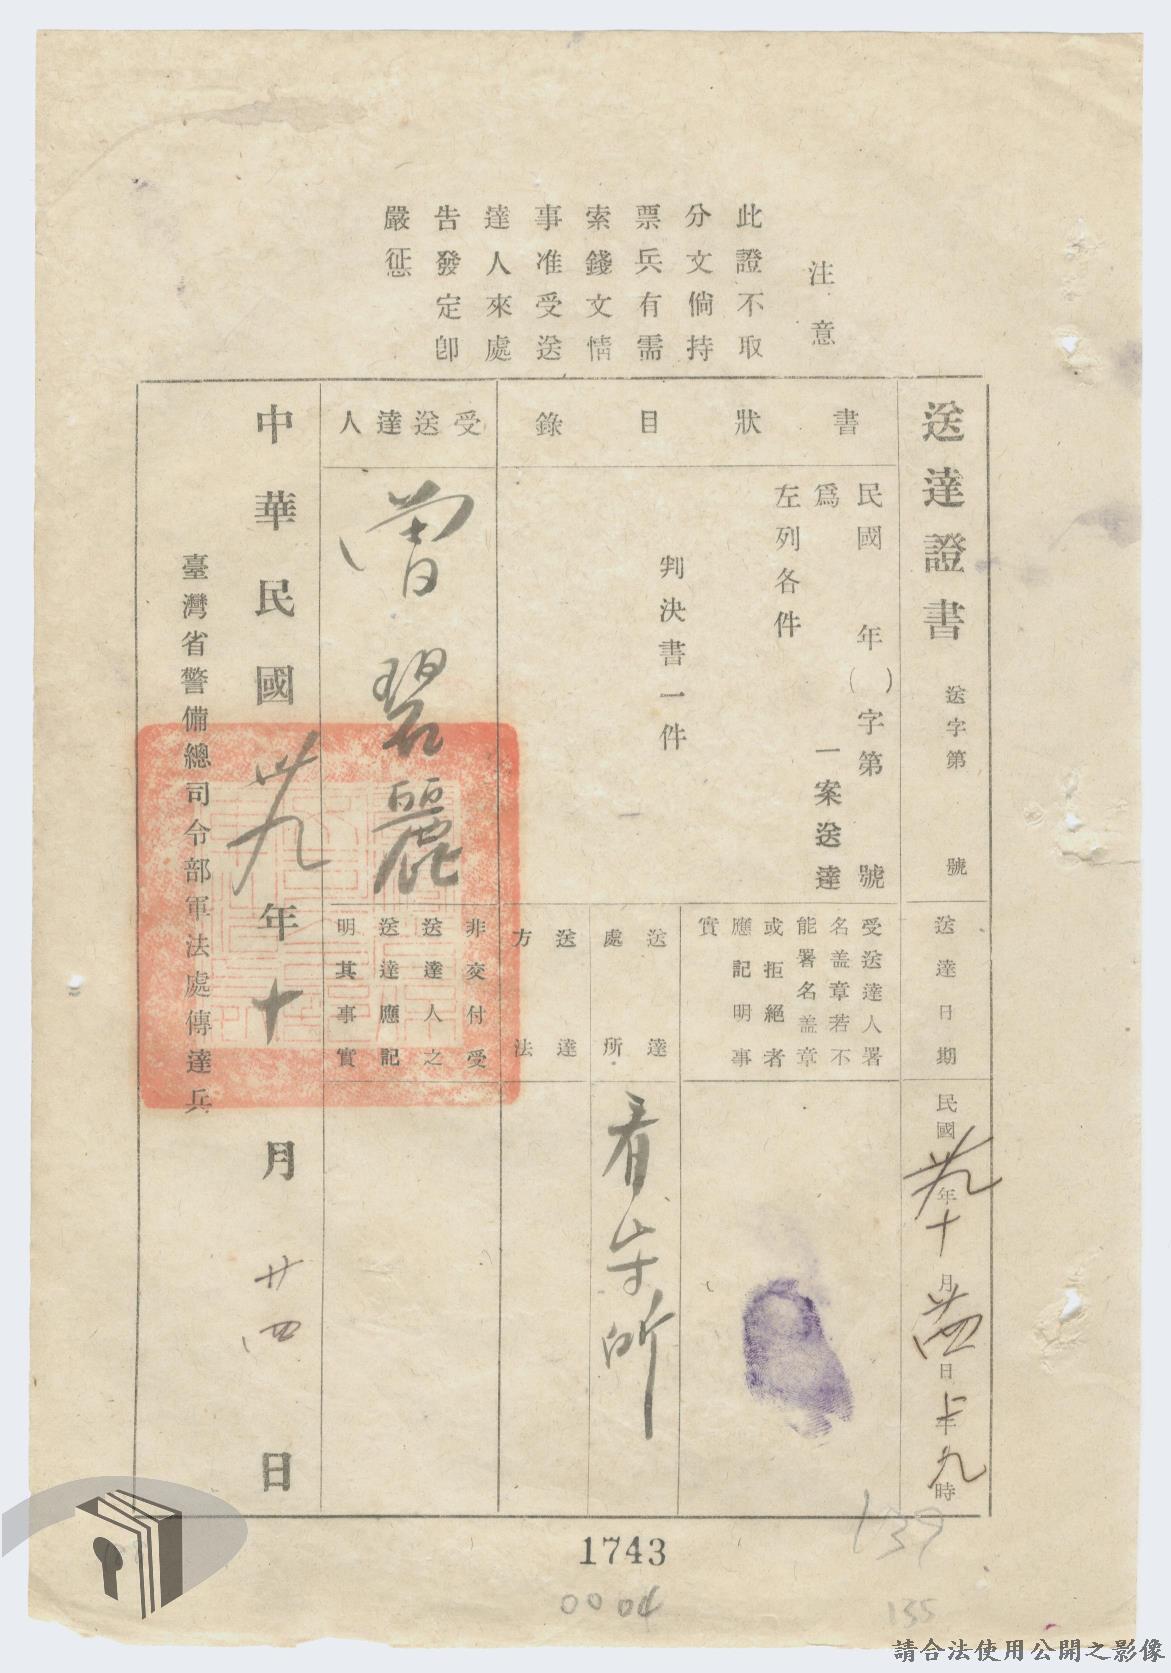 注意
此證不取
分文倘持
票兵有需
索錢文情
事准受送
達人來處
告發定卽
嚴懲
送達證書 送字第 號
送達日期
民國卅九年十月廿四日上午九時
書狀目錄
民國 年( )字第 號
爲 一案送達
左列各件
判決書一件
受送達人署
名盖章若不
能署名盖章
或拒絕者
應記明事
實
送達處所
看守所
送達方法
受送達人
曾碧麗
非交付受
送達人之
送達應記
明其事實
中華民國卅九年十月廿四日
臺灣省警備總司令部軍法處傳達兵
1743
0004
139
135
請合法使用公開之影像